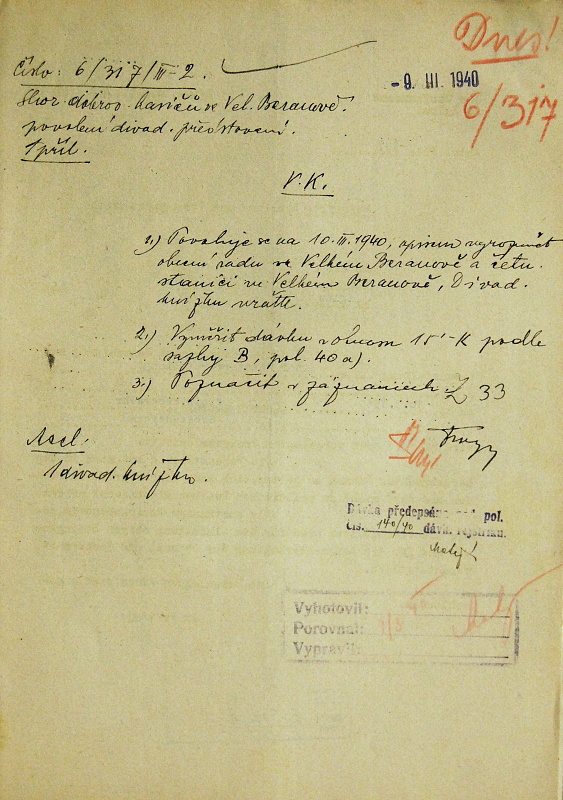 Dnes!
Číslo: 6/317/III-2.
-9. III. 1940
6/317
Sbor dobrov. hasičů ve Vel. Beranově.
povolení divad. představení.
1 příl.
V.K.
1.) Povoluje se na 10.III.1940,
obecní radu ve Velkém Beranově a četn.
stanici ve Velkém Beranově, Divad.
knížku vraťte.
2.) Vyměřit dávku obnosem 15'-K podle
sazby B, pol. 40a).
3.) Poznačit v záznamech Z 33
1 divad. knížku.
Dávka předepsána pod pol.
čís. 140/40 dávk. rejstříku.
Malý
Vyhotovil:
Porovnal:
Vypravil: